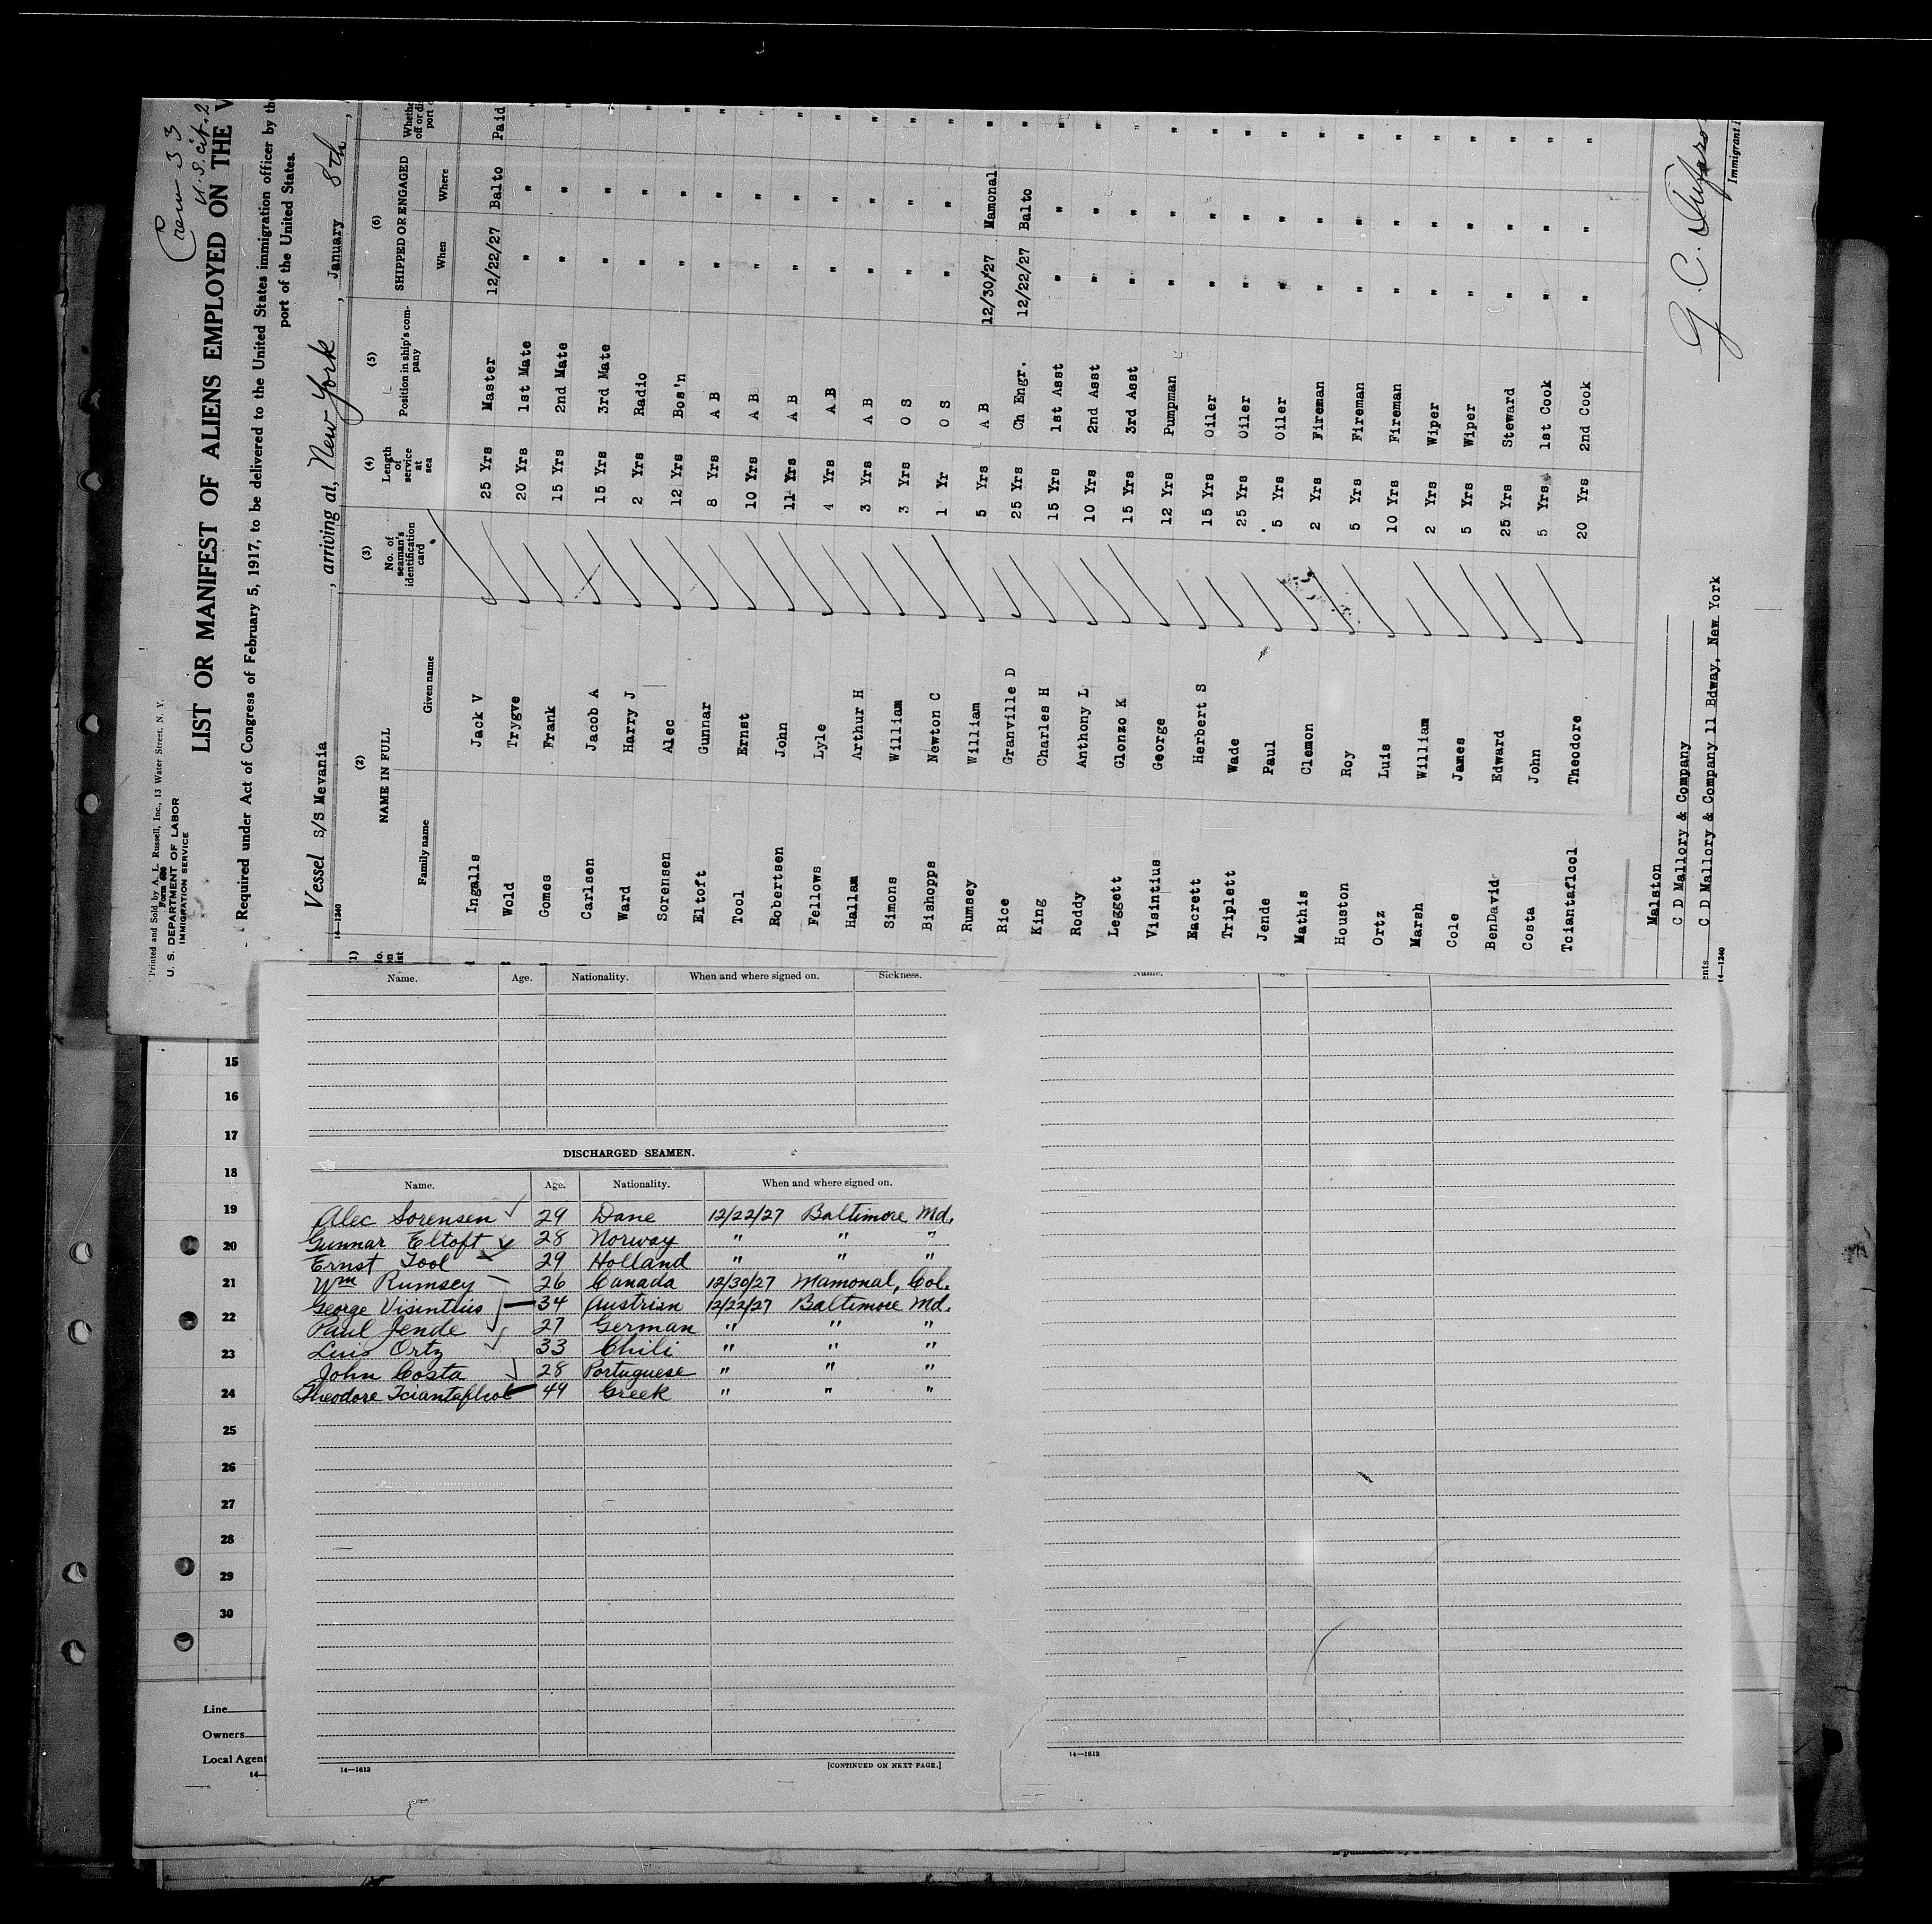 Crew 33
U.S. cit. 2
Printed and Sold by A. L. Russell, Inc., 13 Water Street, N. Y.
Form 680
U. S. DEPARTMENT OF LABOR
IMMIGRATION SERVICE
LIST OR MANIFEST OF ALIENS EMPLOYED ON THE
Required under Act of Congress of February 5, 1917, to be delivered to the United States immigration officer by the
port of the United States.
Vessel S/S Mevania, arriving at, New York, January 8th,
14—1240
(2) (3) (4) (5) (6)
NAME IN FULL No. of seaman's identification card Length of service at sea Position in ship's company SHIPPED OR ENGAGED
Family name Given name When Where
Ingalls Jack V 25 Yrs Master 12/22/27 Balto Paid
Wold Trygve 20 Yrs 1st Mate " " "
Gomes Frank 15 Yrs 2nd Mate " " "
Carlsen Jacob A 15 Yrs 3rd Mate " " "
Ward Harry J 2 Yrs Radio " " "
Sorensen Alec 12 Yrs Bos'n " " "
Eltoft Gunnar 8 Yrs A B " " "
Tool Ernst 10 Yrs A B " " "
Robertsen John 11 Yrs A B " " "
Fellows Lyle 4 Yrs A B " " "
Hallam Arthur H 3 Yrs A B " " "
Simons William 3 Yrs O S " " "
Bishopps Newton C 1 Yr O S " " "
Rumsey William 5 Yrs A B 12/30/27 Mamonal "
Rice Granville D 25 Yrs Ch Engr. 12/22/27 Balto "
King Charles H 15 Yrs 1st Asst " " "
Roddy Anthony L 10 Yrs 2nd Asst " " "
Leggett Glonzo K 15 Yrs 3rd Asst " " "
Visintius George 12 Yrs Pumpman " " "
Eacrett Herbert S 15 Yrs Oiler " " "
Triplett Wade 25 Yrs Oiler " " "
Jende Paul 5 Yrs Oiler " " "
Mathis Clemon 2 Yrs Fireman " " "
Houston Roy 5 Yrs Fireman " " "
Ortz Luis 10 Yrs Fireman " " "
Marsh William 2 Yrs Wiper " " "
Cole James 5 Yrs Wiper " " "
BenDavid Edward 25 Yrs Steward " " "
Costa John 5 Yrs 1st Cook " " "
Tciantaflccl Theodore 20 Yrs 2nd Cook " " "
Malston
C D Mallory & Company
C D Mallory & Company 11 Bdway, New York
14—1240
G. C.
Immigrant
Name. Age. Nationality. When and where signed on. Sickness.
DISCHARGED SEAMEN.
Name. Age. Nationality. When and where signed on.
Alec Sorensen 29 Dane 12/22/27 Baltimore Md.
Gunnar Eltoft 28 Norway " " "
Ernst Tool 29 Holland " " "
Wm Rumsey 26 Canada 12/30/27 Mamonal, Col.
George Visintius 34 Austrian 12/22/27 Baltimore Md.
Paul Jende 27 German " " "
Luis Ortz 33 Chili " " "
John Costa 28 Portuguese " " "
Theodore Tciantaflcol 44 Greek " " "
14—1613
[CONTINUED ON NEXT PAGE.]
14—1613
15
16
17
18
19
20
21
22
23
24
25
26
27
28
29
30
Line
Owners
Local Agent
14—